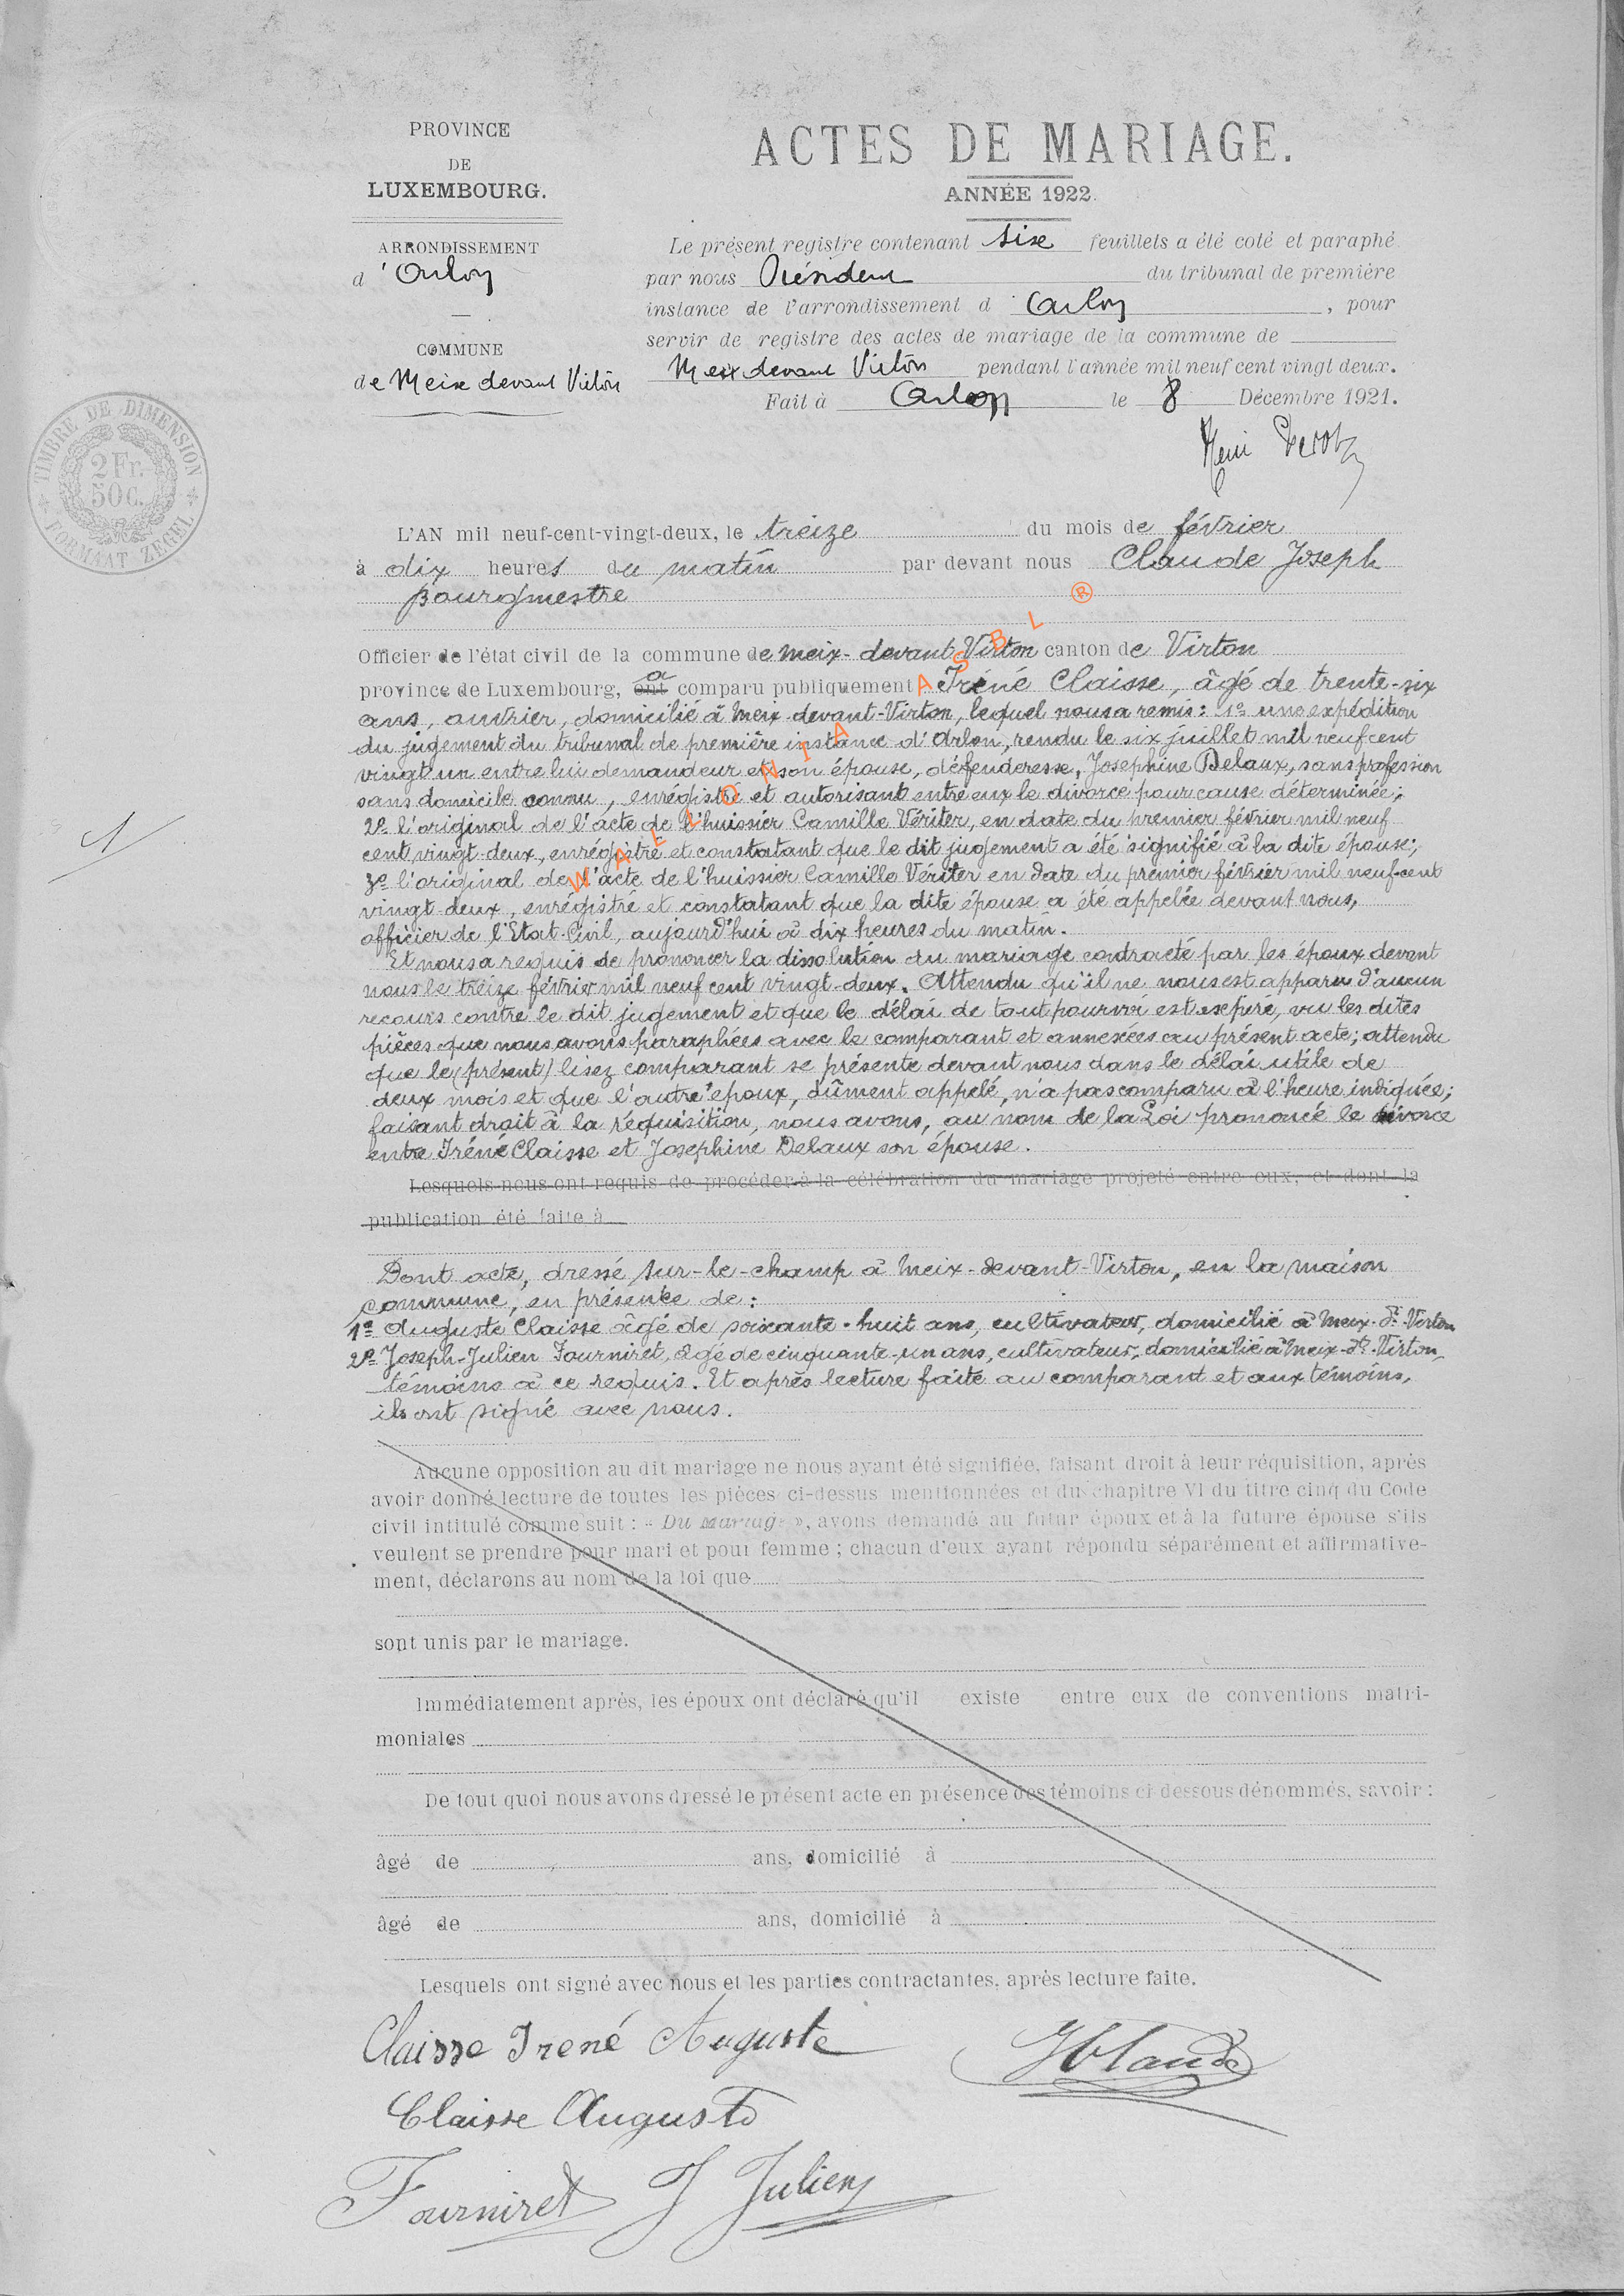 PROVINCE
DE
LUXEMBOURG.
ARRONDISSEMENT
d'Arlon
COMMUNE
de Meix devant Virton
TIMBRE DE DIMENSION
2 Fr.
50 c.
FORMAAT ZEGEL
ACTES DE MARIAGE.
ANNÉE 1922.
Le présent registre contenant six feuillets a été coté et paraphé
par nous Président du tribunal de première
instance de l'arrondissement d'Arlon, pour
servir de registre des actes de mariage de la commune de
Meix devant Virton pendant l'année mil neuf cent vingt deux.
Fait à Arlon le 8 Décembre 1921.
L'AN mil neuf-cent-vingt-deux, le treize du mois de février
à dix heures du matin par devant nous Claude Joseph
Bourgmestre
Officier de l'état civil de la commune de Meix-devant-Virton canton de Virton
province de Luxembourg, ont a comparu publiquement Iréné Claisse, âgé de trente-six
ans, ouvrier, domicilié à Meix-devant-Virton, lequel nous a remis: 1º une expédition
du jugement du tribunal de première instance d'Arlon, rendu le six juillet mil neuf cent
vingt un entre lui demandeur et son épouse, défenderesse, Josephine Delaux, sans profession
sans domicile connu, enrégistré et autorisant entre eux le divorce pour cause déterminée;
2º l'original de l'acte de l'huissier Camille Vériter, en date du premier février mil neuf
cent vingt-deux, enrégistré et constatant que le dit jugement a été signifié à la dite épouse;
3º l'original de l'acte de l'huissier Camille Vériter en date du premier février mil neuf-cent
vingt-deux, enrégistré et constatant que la dite épouse a été appelée devant nous,
officier de l'Etat-Civil, aujourd'hui à dix heures du matin.
Et nous a requis de prononcer la dissolution du mariage contracté par les époux devant
nous le treize février mil neuf cent vingt-deux. Attendu qu'il ne nous est apparu d'aucun
recours contre le dit jugement et que le délai de tout pourvoi est expiré, vu les dites
pièces que nous avons paraphées avec le comparant et annexées au présent acte; attendu
que le (présent) lisez comparant se présente devant nous dans le délai utile de
deux mois et que l'autre époux, dûment appelé, n'a pas comparu à l'heure indiquée;
faisant droit à la réquisition, nous avons, au nom de la Loi prononcé le divorce
entre Iréné Claisse et Josephine Delaux son épouse.
Lesquels nous ont requis de procéder à la célébration du mariage projeté entre eux, et dont la
publication été faite à
Dont acte, dressé sur-le-champ à Meix-devant-Virton, en la maison
commune, en présence de:
1º Auguste Claisse âgé de soixante-huit ans, cultivateur, domicilié à Meix-dt-Virton
2º Joseph-Julien Fourniret, âgé de cinquante-un ans, cultivateur, domicilié à Meix-dt-Virton,
témoins à ce requis. Et après lecture faite au comparant et aux témoins,
ils ont signé avec nous.
Aucune opposition au dit mariage ne nous ayant été signifiée, faisant droit à leur réquisition, après
avoir donné lecture de toutes les pièces ci-dessus mentionnées et du chapitre VI du titre cinq du Code
civil intitulé comme suit : « Du Mariage », avons demandé au futur époux et à la future épouse s'ils
veulent se prendre pour mari et pour femme ; chacun d'eux ayant répondu séparément et affirmative-
ment, déclarons au nom de la loi que
sont unis par le mariage.
Immédiatement après, les époux ont déclaré qu'il existe entre eux de conventions matri-
moniales
De tout quoi nous avons dressé le présent acte en présence des témoins ci-dessous dénommés, savoir :
âgé de ans, domicilié à
âgé de ans, domicilié à
Lesquels ont signé avec nous et les parties contractantes, après lecture faite.
Claisse Irené Auguste
JClaude
Claisse Auguste
Fourniret J Julien
1
WALLONIA ASBL ®